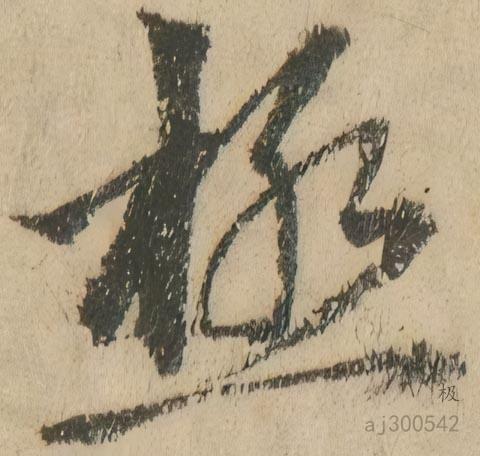 極
极
aj300542